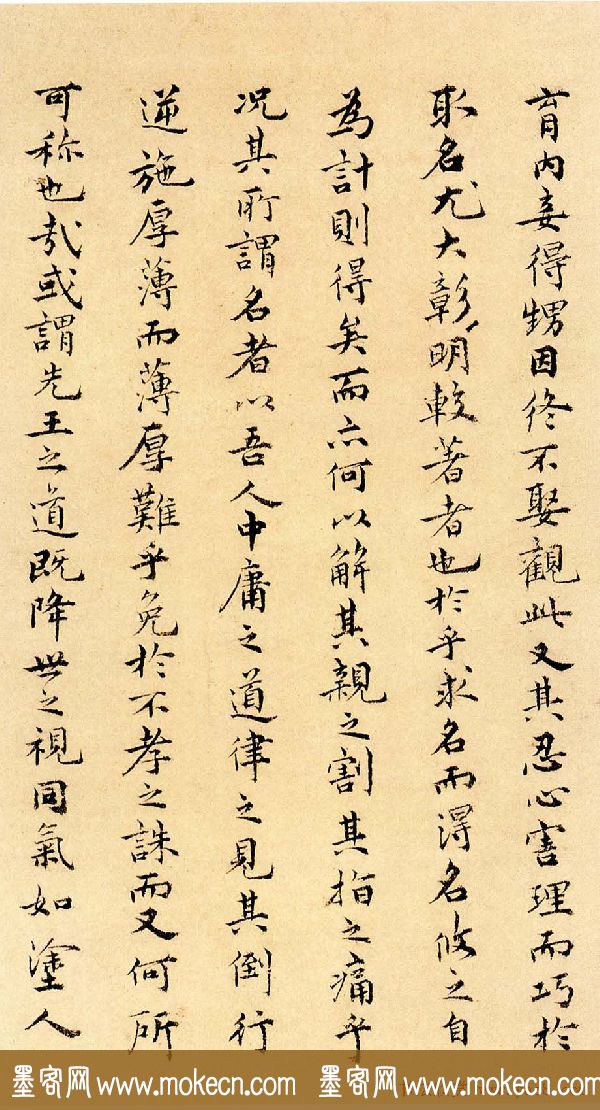 育内妾得甥因终不娶觀此又其忍心害理而巧於
取名尤大彰明較著者也於乎求名而得名攸之自
為計則得矣而亦何以解其親之割其指之痛乎
况其所謂名者以吾人中庸之道律之見其倒行
逆施厚薄而薄厚難乎免於不孝之誅而又何所
可称也哉或謂先王之道既降世之視同氣如塗人
墨客网 www.mokecn.com 墨客网 www.mokecn.com